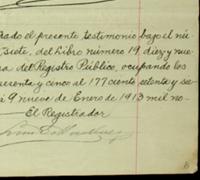 rado el presente testimonio bajo el nú
siete, del Libro número 19, diez y nue
a del Registro Público, ocupando los
uarenta y cinco al 177 ciento setenta y se
i 9 nueve de Enero de 1913 mil no-
El Registrador